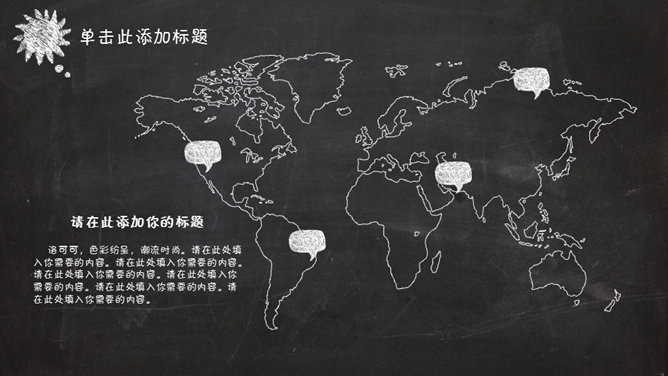 单击此添加标题
请在此添加你的标题
洛可可，色彩纷呈，潮流时尚。请在此处填
入你需要的内容。请在此处填入你需要的内容。
请在此处填入你需要的内容。请在此处填入你
需要的内容。请在此处填入你需要的内容。请
在此处填入你需要的内容。